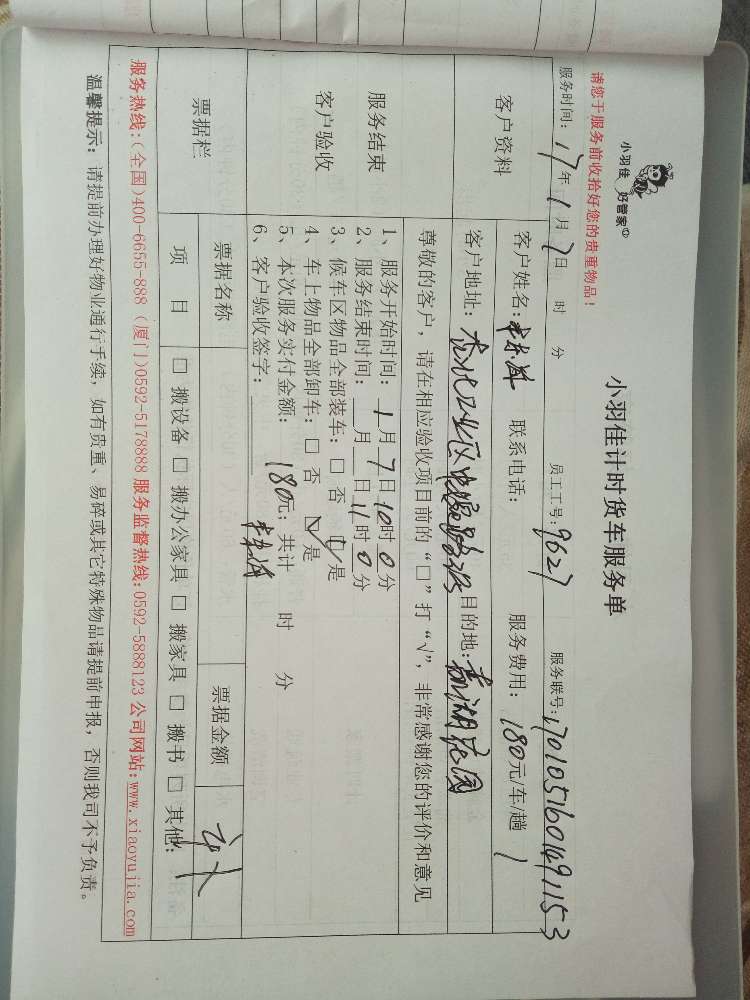 小羽佳 好管家
小羽佳计时货车服务单
请您于服务前收拾好您的贵重物品！
服务时间：17年1月7日 时 分 员工工号：9627 服务联号：
客户资料
客户姓名： 联系电话： 服务费用：180元/车/趟 1
客户地址： 目的地：
服务结束
客户验收
尊敬的客户，请在相应验收项目前的“□”打“√”，非常感谢您的评价和意见
1、服务开始时间：1月7日10时0分
2、服务结束时间： 月 日11时0分
3、候车区物品全部装车：□ 否 ☑ 是
4、车上物品全部卸车：□ 否 ☑ 是
5、本次服务实付金额：180元；共计 时 分
6、客户验收签字：
票据栏
票据名称 票据金额
项 目 □ 搬设备 □ 搬办公家具 □ 搬家具 □ 搬书 □ 其他：
服务热线：(全国)400-6655-888 (厦门)0592-5178888 服务监督热线：0592-5888123 公司网站：www.xiaoyujia.com
温馨提示：请提前办理好物业通行手续，如有贵重、易碎或其它特殊物品请提前申报，否则我司不予负责。